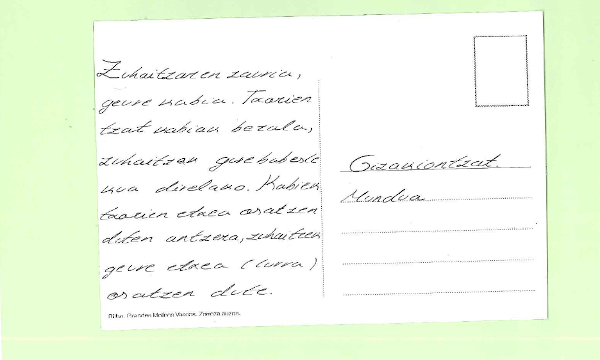 Zuhaitzaren zauria,
geure kabia. Txorien
tzat kabiak bezala,
zuhaitzak gure babesle
kua direlako. Kabiek
txorien etxea osatzen
duten antzera, zuhaitzek
geure etxea (lurra)
osatzen dute.
Gizakiontzat.
Mundua